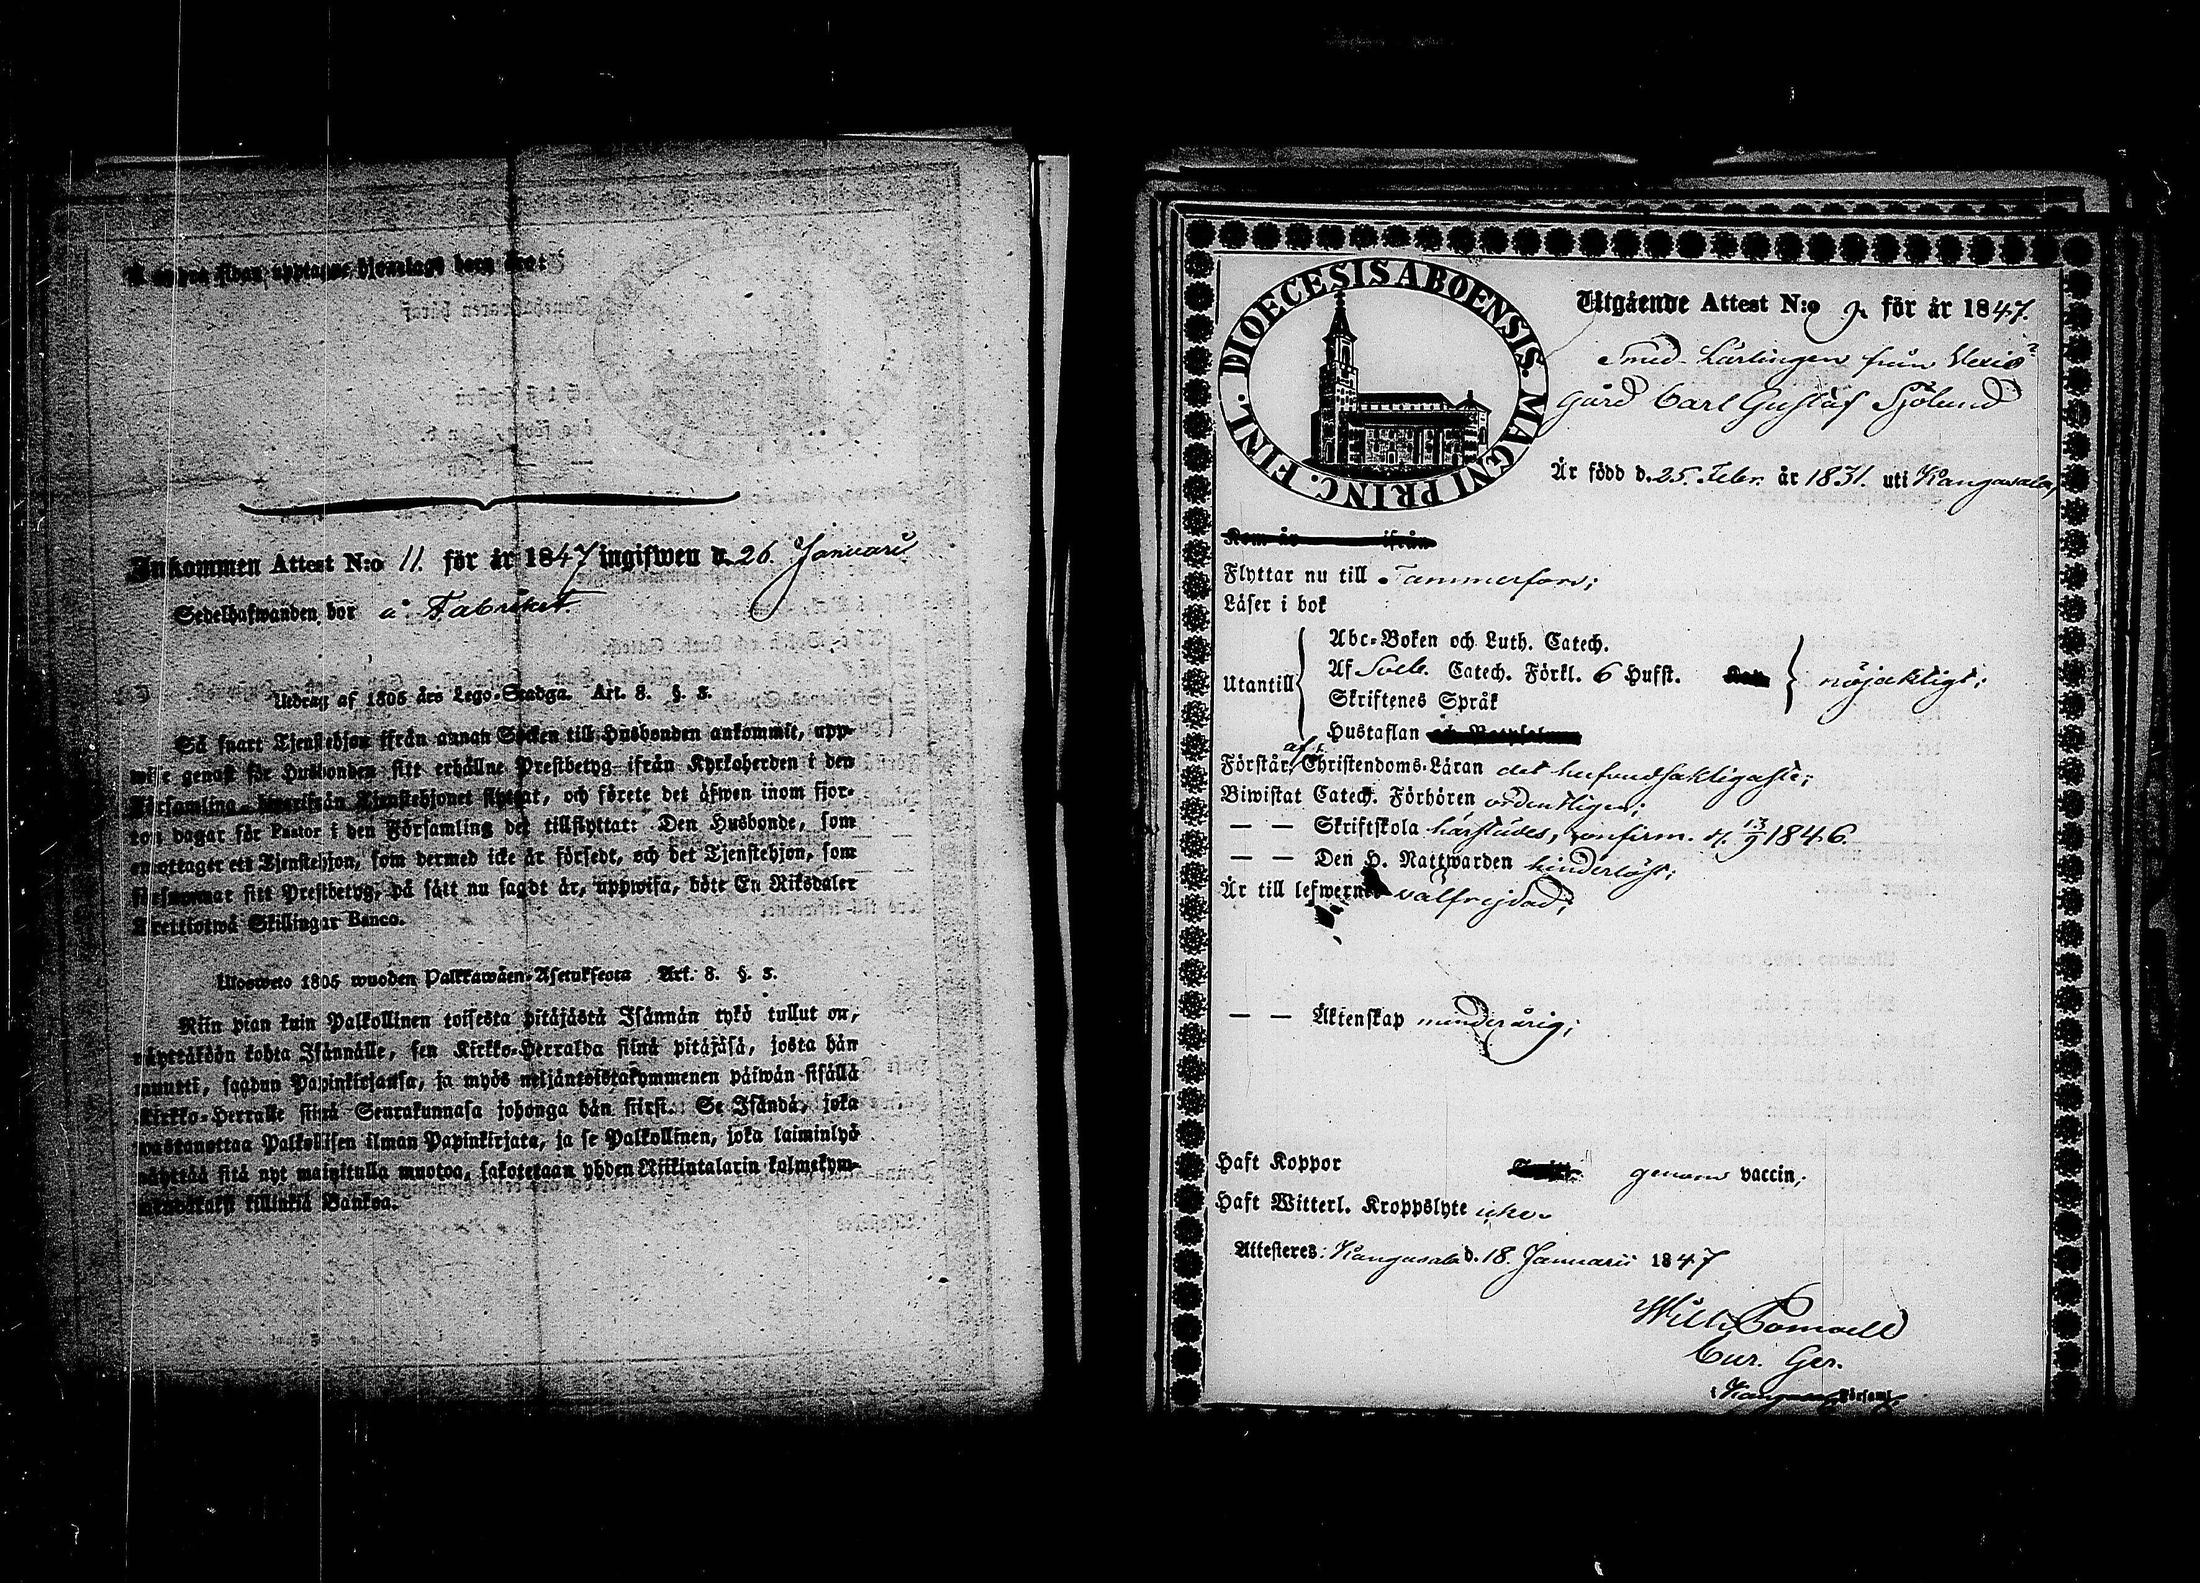 Inkommen Attest N:o 11. för år 1847 ingifwen d. 26. Januarii
Sedelhafwanden bor å Fabriket
Utdrag af 1805 års Lego-Stadga. Art. 8. §. 3.
Så snart Tjenstehjon ifrån annan Socken till Husbonden ankommit, upp-
wise genast för Husbonden sitt erhållne Prestbetyg ifrån Kyrkoherden i den
Församling hwarifrån Tjenstehjonet flyttat, och förete det äfwen inom fjor-
ton dagar för Pastor i den Församling det tillflyttat: Den Husbonde, som
emottager ett Tjenstehjon, som dermed icke är försedt, och det Tjenstehjon, som
försummar sitt Prestbetyg, på sätt nu sagdt är, uppwisa, böte En Riksdaler
Trettiotwå Skillingar Banco.
Ulosweto 1805 wuoden Palkkawäen-Asetuksesta Art. 8. §. 3.
Niin pian kuin Palkollinen toisesta pitäjästä Isännän tykö tullut on,
näyttäköön kohta Isännälle, sen Kirkko-Herralda siinä pitäjäsä, josta hän
muutti, saadun Papinkirjansa, ja myös neljäntoistakymmenen päiwän sisällä
Kirkko-Herralle siinä Seurakunnasa johonga hän siirsi: Se Isändä, joka
wastanottaa Palkollisen ilman Papinkirjata, ja se Palkollinen, joka laiminlyö
näyttää sitä nyt mainitulla muotoa, sakotetaan yhden Riikintalarin kolmekym-
mendäkaksi killinkiä Bankoa.
FINL. DIOECESIS ABOENSIS. MAGNI PRINC.
Utgående Attest N:o 9. för år 1847.
Smed-Lärlingen från Wexiö
gård Carl Gustaf Sjölund
Är född d. 25. Febr. år 1831. uti Kangasala,
Kom år ifrån
Flyttar nu till Tammerfors;
Läser i bok
Abc-Boken och Luth. Catech.
Utantill Af Sveb. Catech. Förkl. 6 Hufst. nöjaktigt;
Skriftenes Språk
Hustaflan
Förstår af Christendoms-Läran det hufvudsakligaste;
Biwistat Catech. Förhören ordentligen;
— — Skriftskola härstädes, confirm. d. 13/9 1846.
— — Den H. Nattwarden hinderlöst;
Är till lefwernet välfrejdad;
— — Äktenskap minderårig;
Haft Koppor genom vaccin;
Haft Witterl. Kroppslyte icke.
Attesteres: Kangasala d. 18. Januarii 1847
Wilh. Bomvell
Cur. Ger.
i Kangasala Församl.